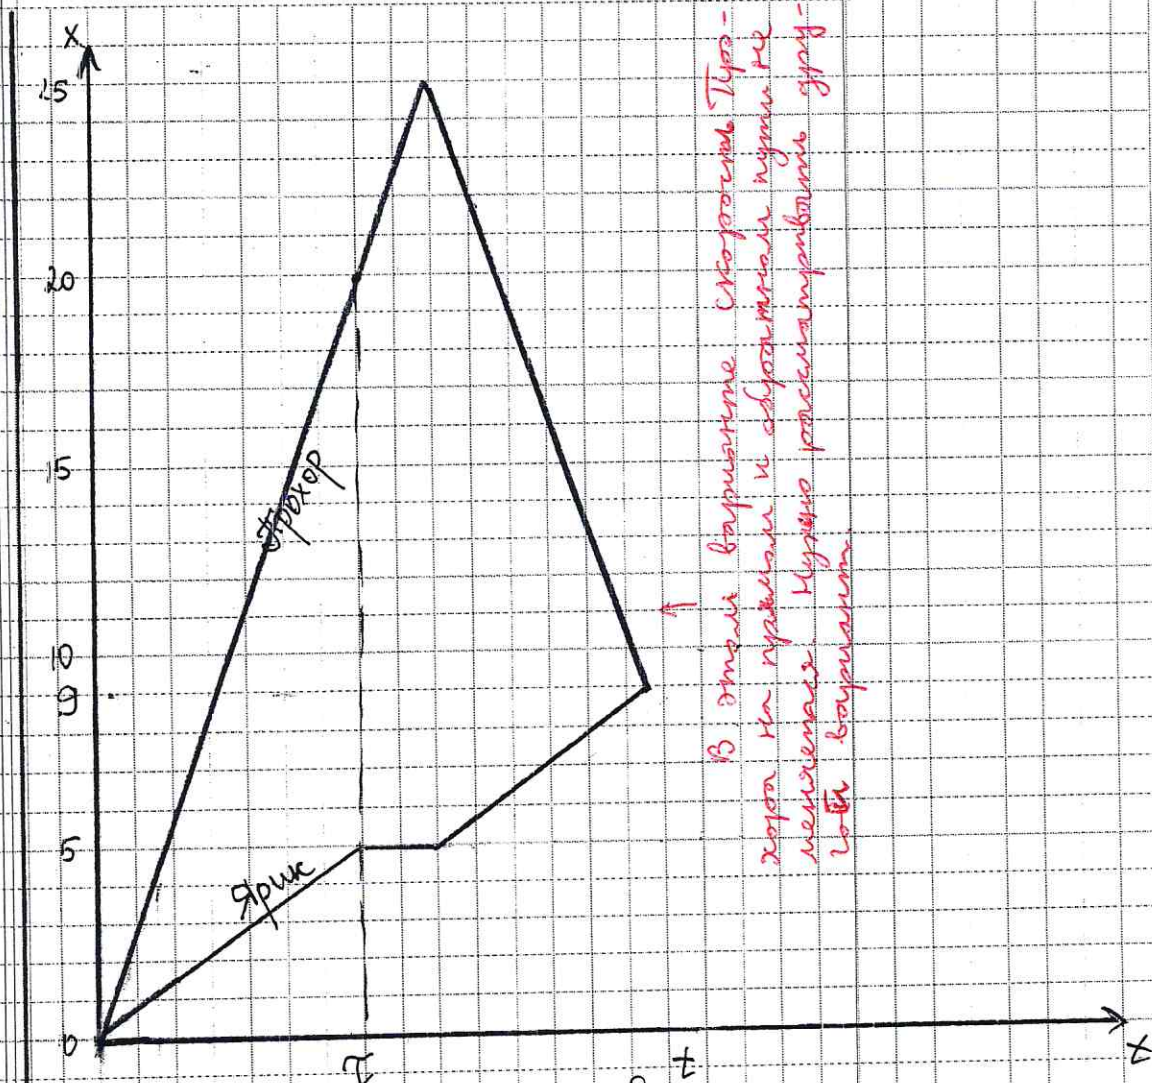 x
25
20
15
10
9
5
0
Прохор
Ярик
τ
t
В этом варианте скорость Про-
хора на прямом и обратном пути не
менялась. Нужно рассматривать дру-
гой вариант